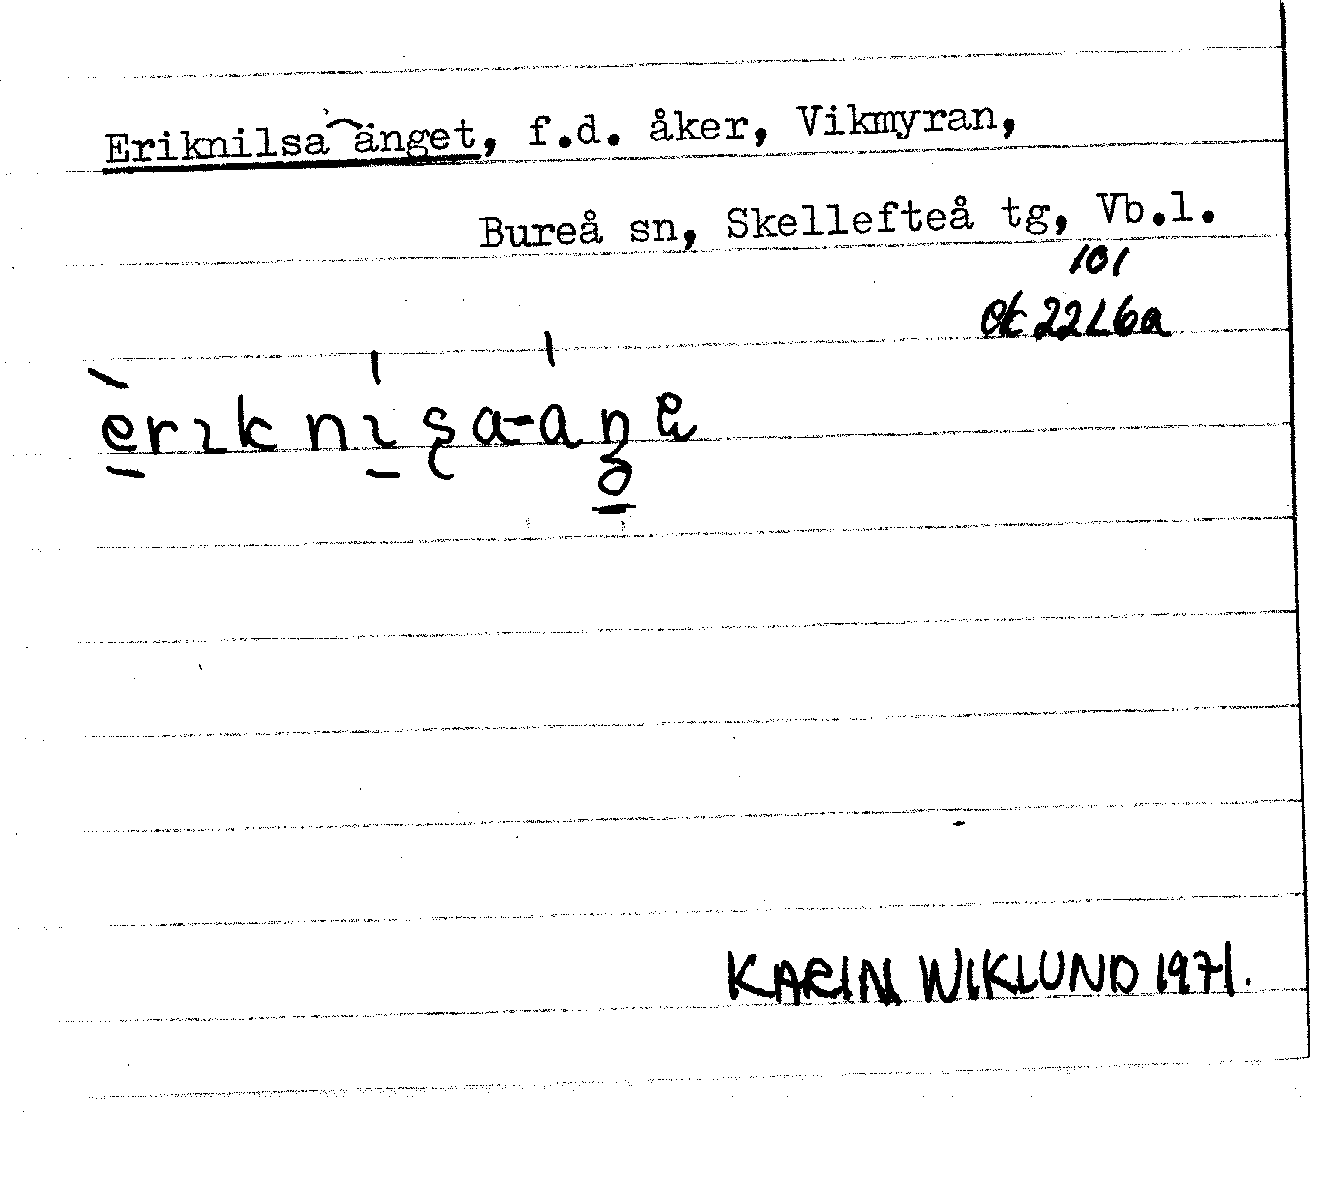 Eriknilsa änget, f.d. åker, Vikmyran,
Bureå sn, Skellefteå tg, Vb.l.
101
ek 22L6a
KARIN WIKLUND 1971.